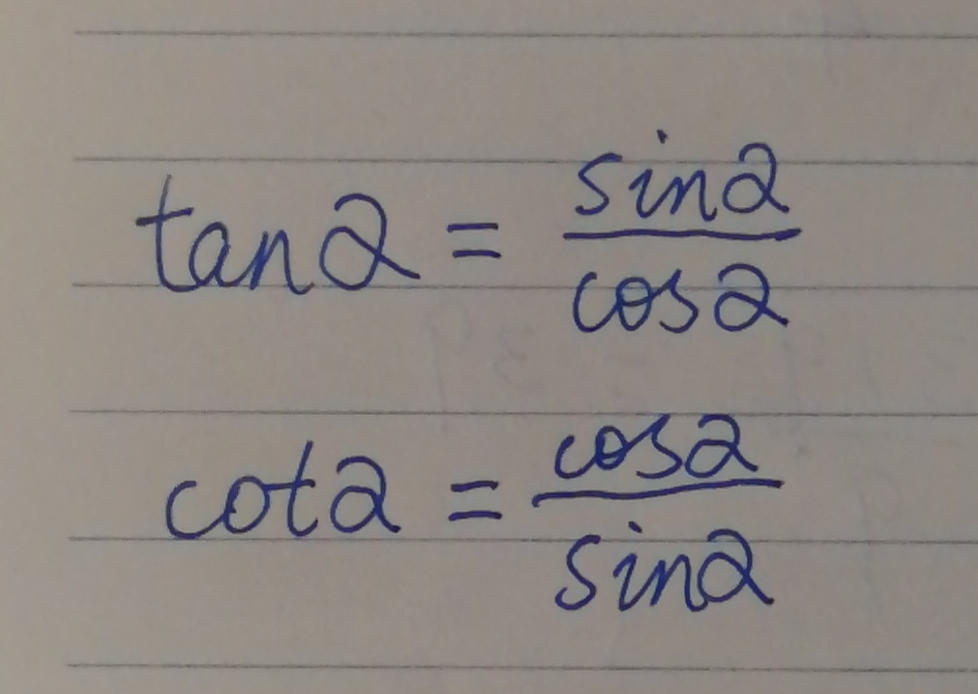 tan α = sin α / cos α
cot α = cos α / sin α